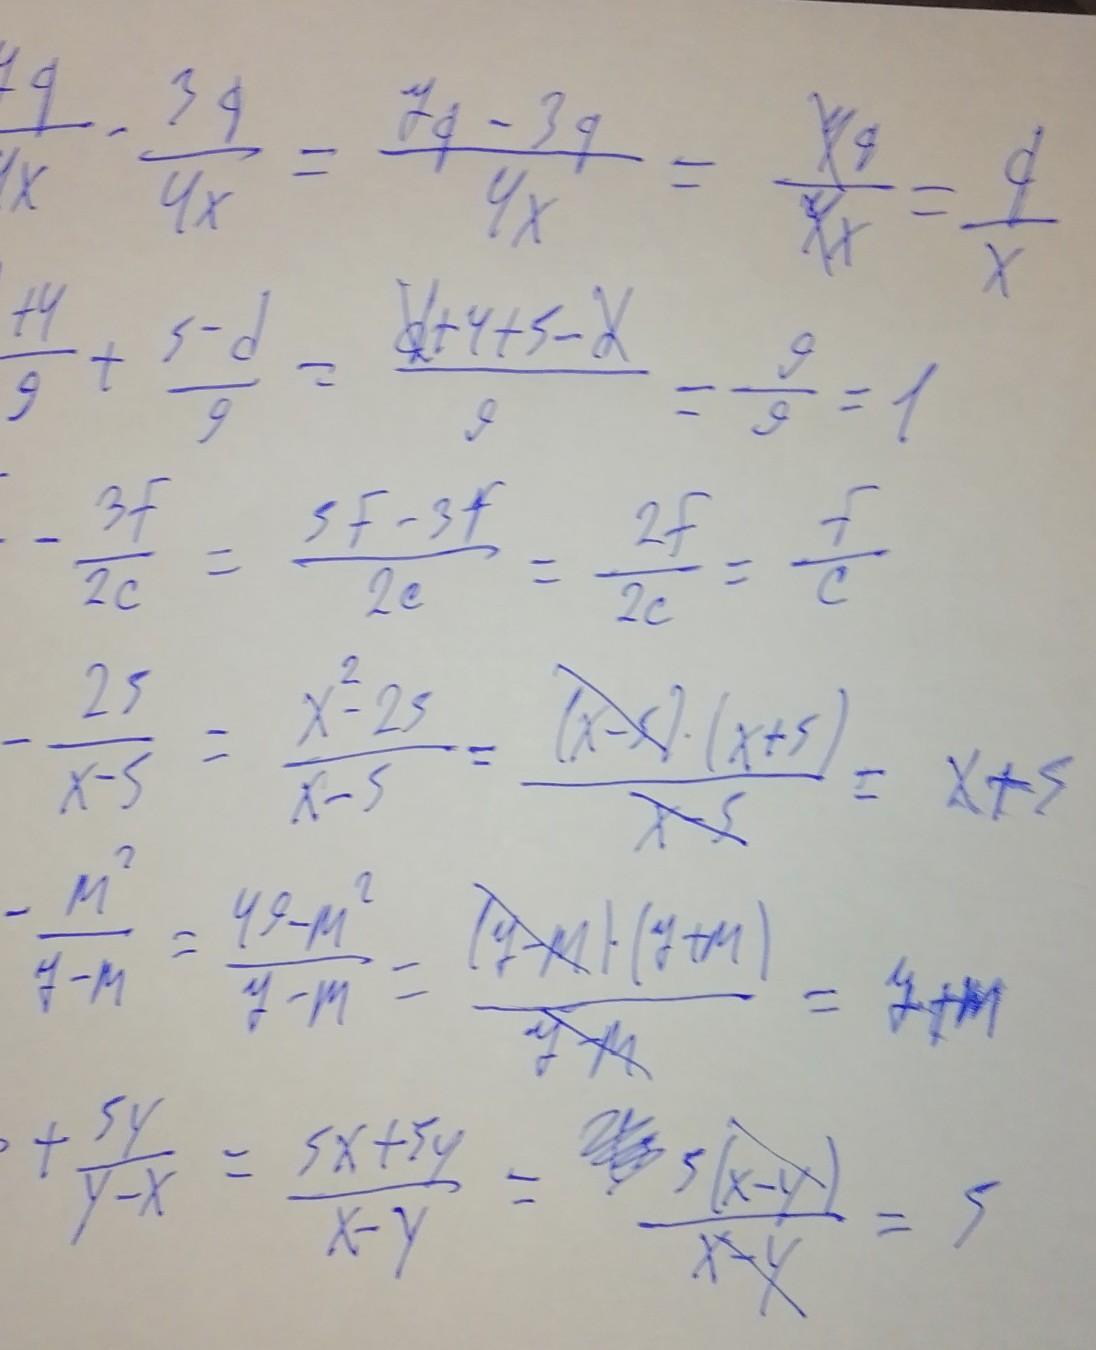 7q/4x - 3q/4x = 7q-3q/4x = 4q/4x = q/x
+4/9 + 5-d/9 = d+4+5-d/9 = 9/9 = 1
- 3f/2c = 5f-3f/2c = 2f/2c = f/c
- 25/x-5 = x²-25/x-5 = (x-5)·(x+5)/x-5 = x+5
- m²/7-m = 49-m²/7-m = (7-m)·(7+m)/7-m = 7+m
+ 5y/y-x = 5x+5y/x-y = 5(x-y)/x-y = 5